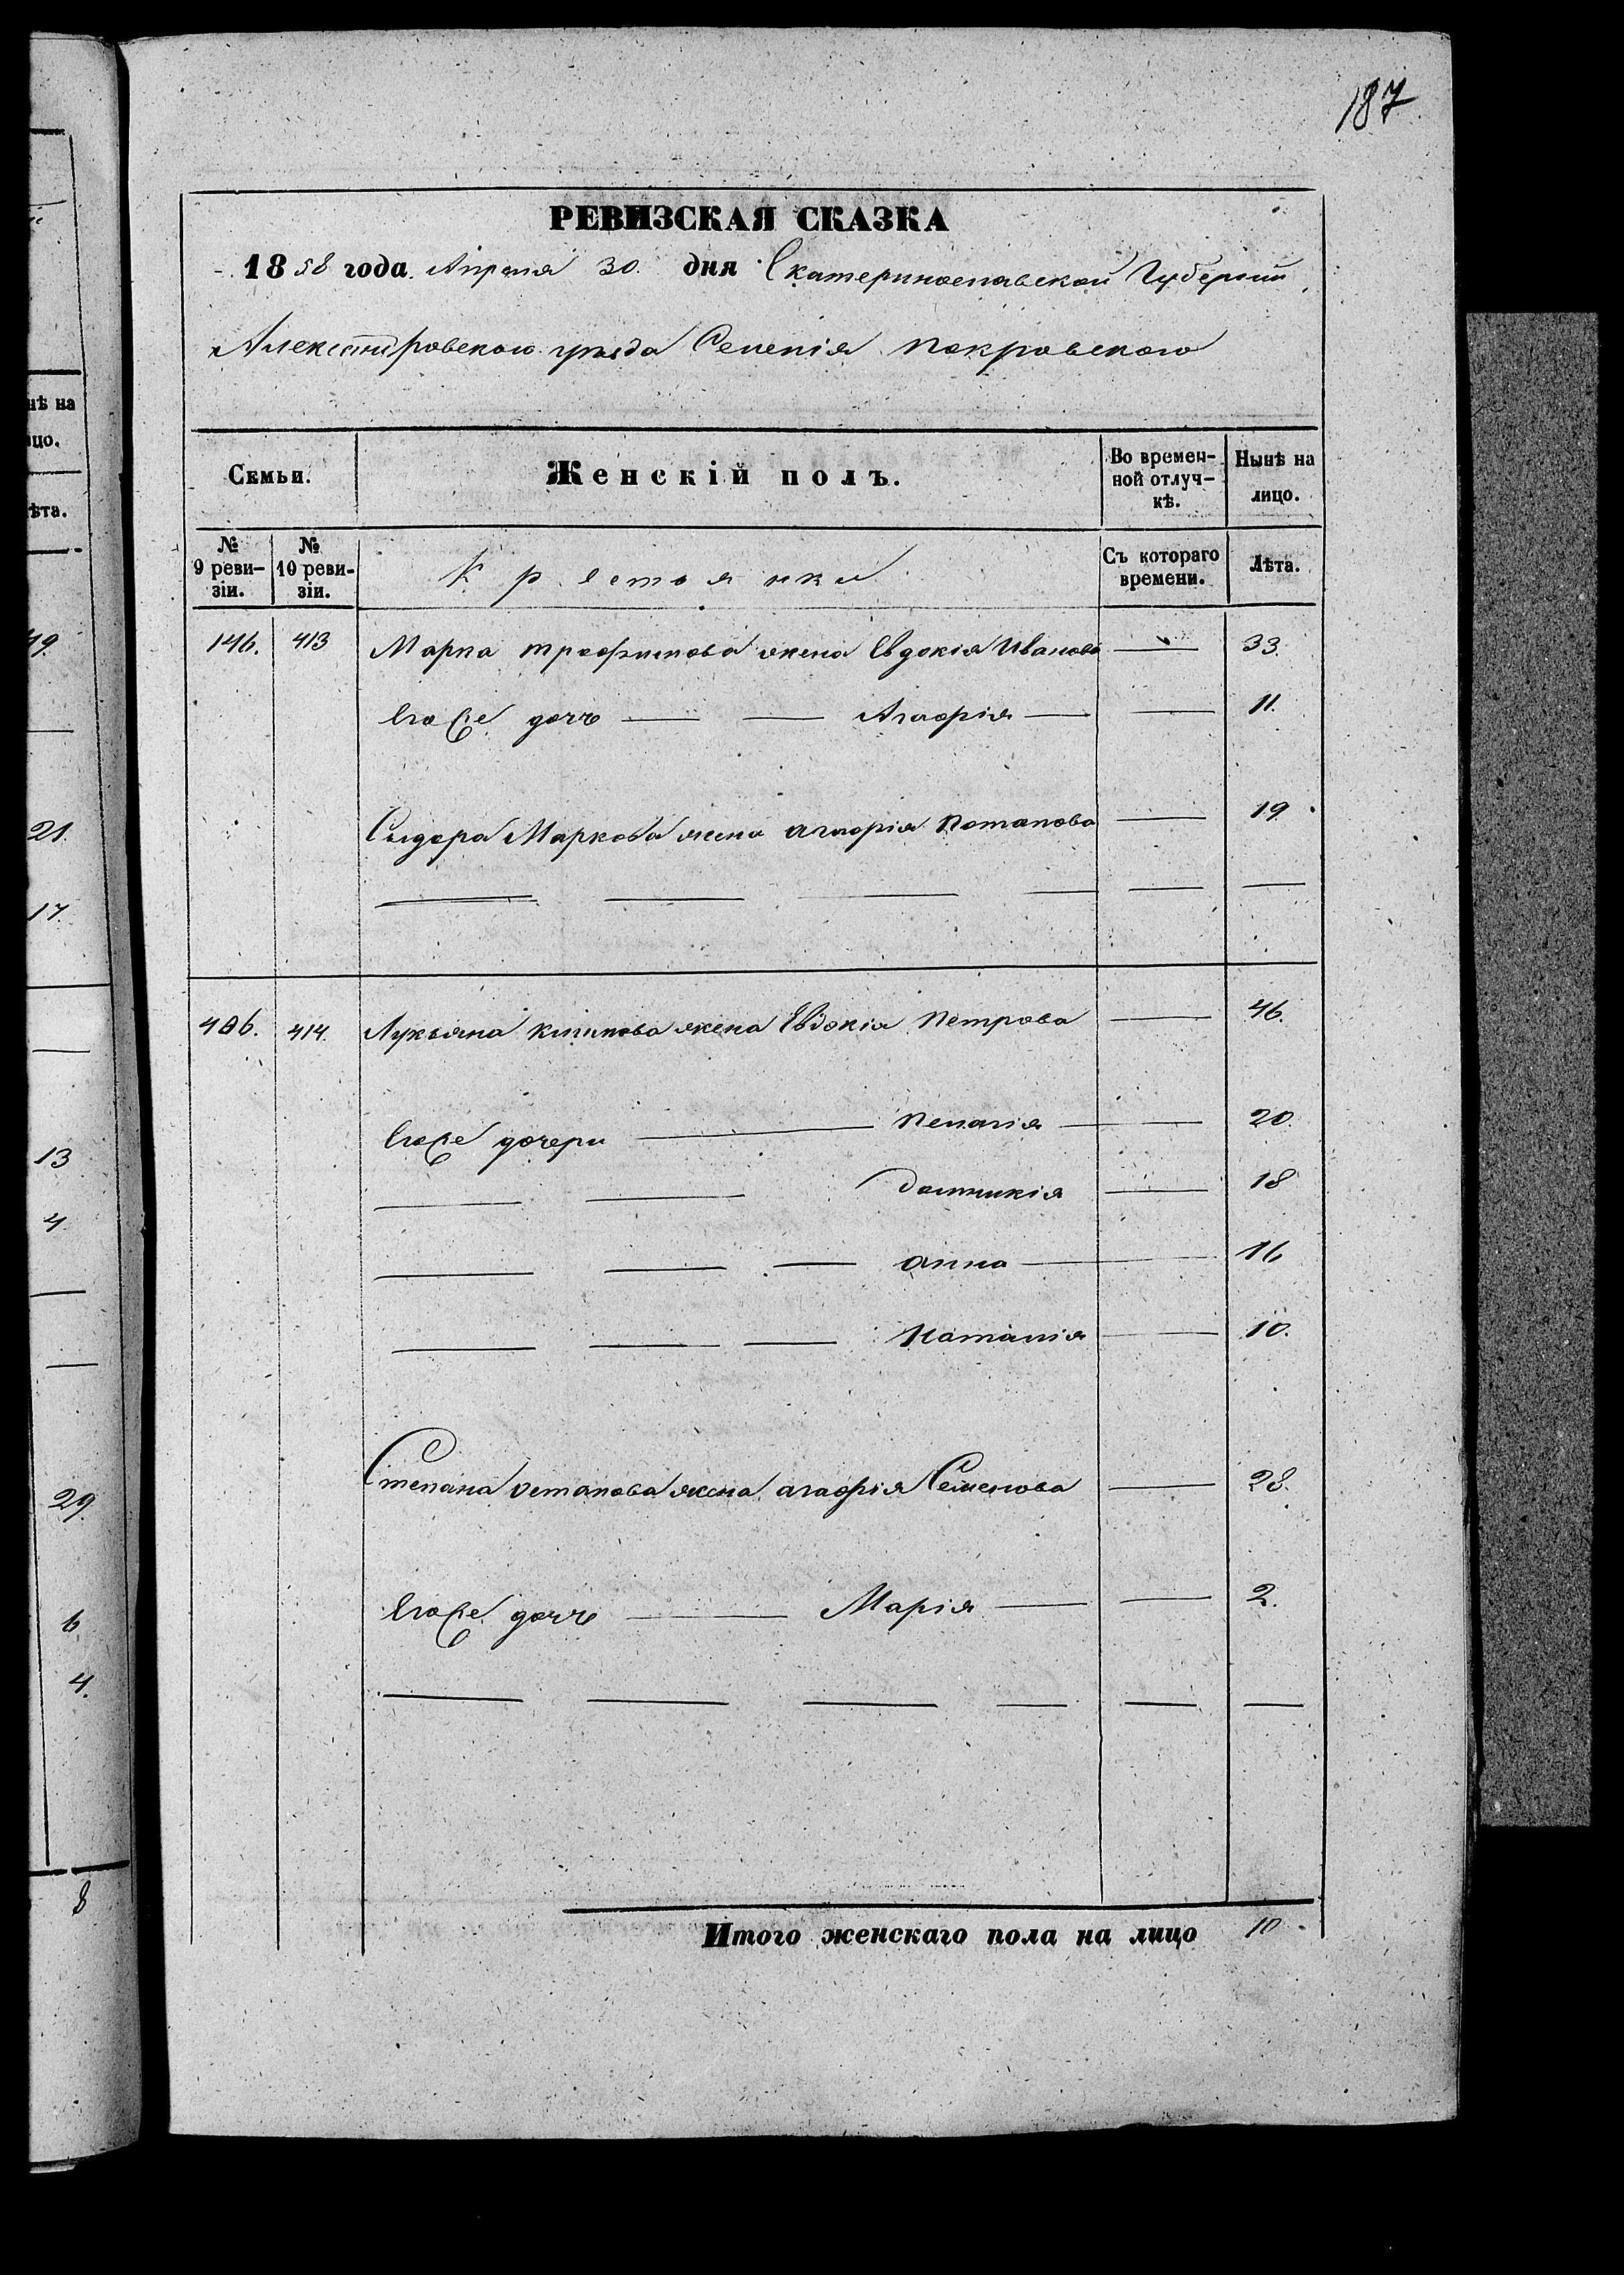 187
РЕВИЗСКАЯ СКАЗКА
1858 года Апреля 30. дня Екатеринославской Губерніи
Александровского уезда Селенія Покровского
Семьи.
Женскій полъ.
Во времен-
ной отлуч-
кѣ.
Нынѣ на
лицо.
№
9 реви-
зіи.
№
10 реви-
зіи.
Крестьянки
Съ котораго
времени.
Лѣта.
146. 413 Марка трофимова жена Евдокія Иванова — 33.
Его же дочь — — Агафія — — 11.
Сидора Маркова жена агафія Потапова — 19
406. 414. Лукьяна жена Евдокія Петрова — 46.
Его же дочери — Пелагія — 20.
— — Домникія — 18
— — — анна — 16
— — — Наталія — 10.
Степана остапова жена агафія Семенова — 28.
Его же дочь — Марія — — 2.
Итого женскаго пола на лицо 10
нѣ на
цо.
ѣта.
19.
21.
17.
13
4
29
6
4.
8